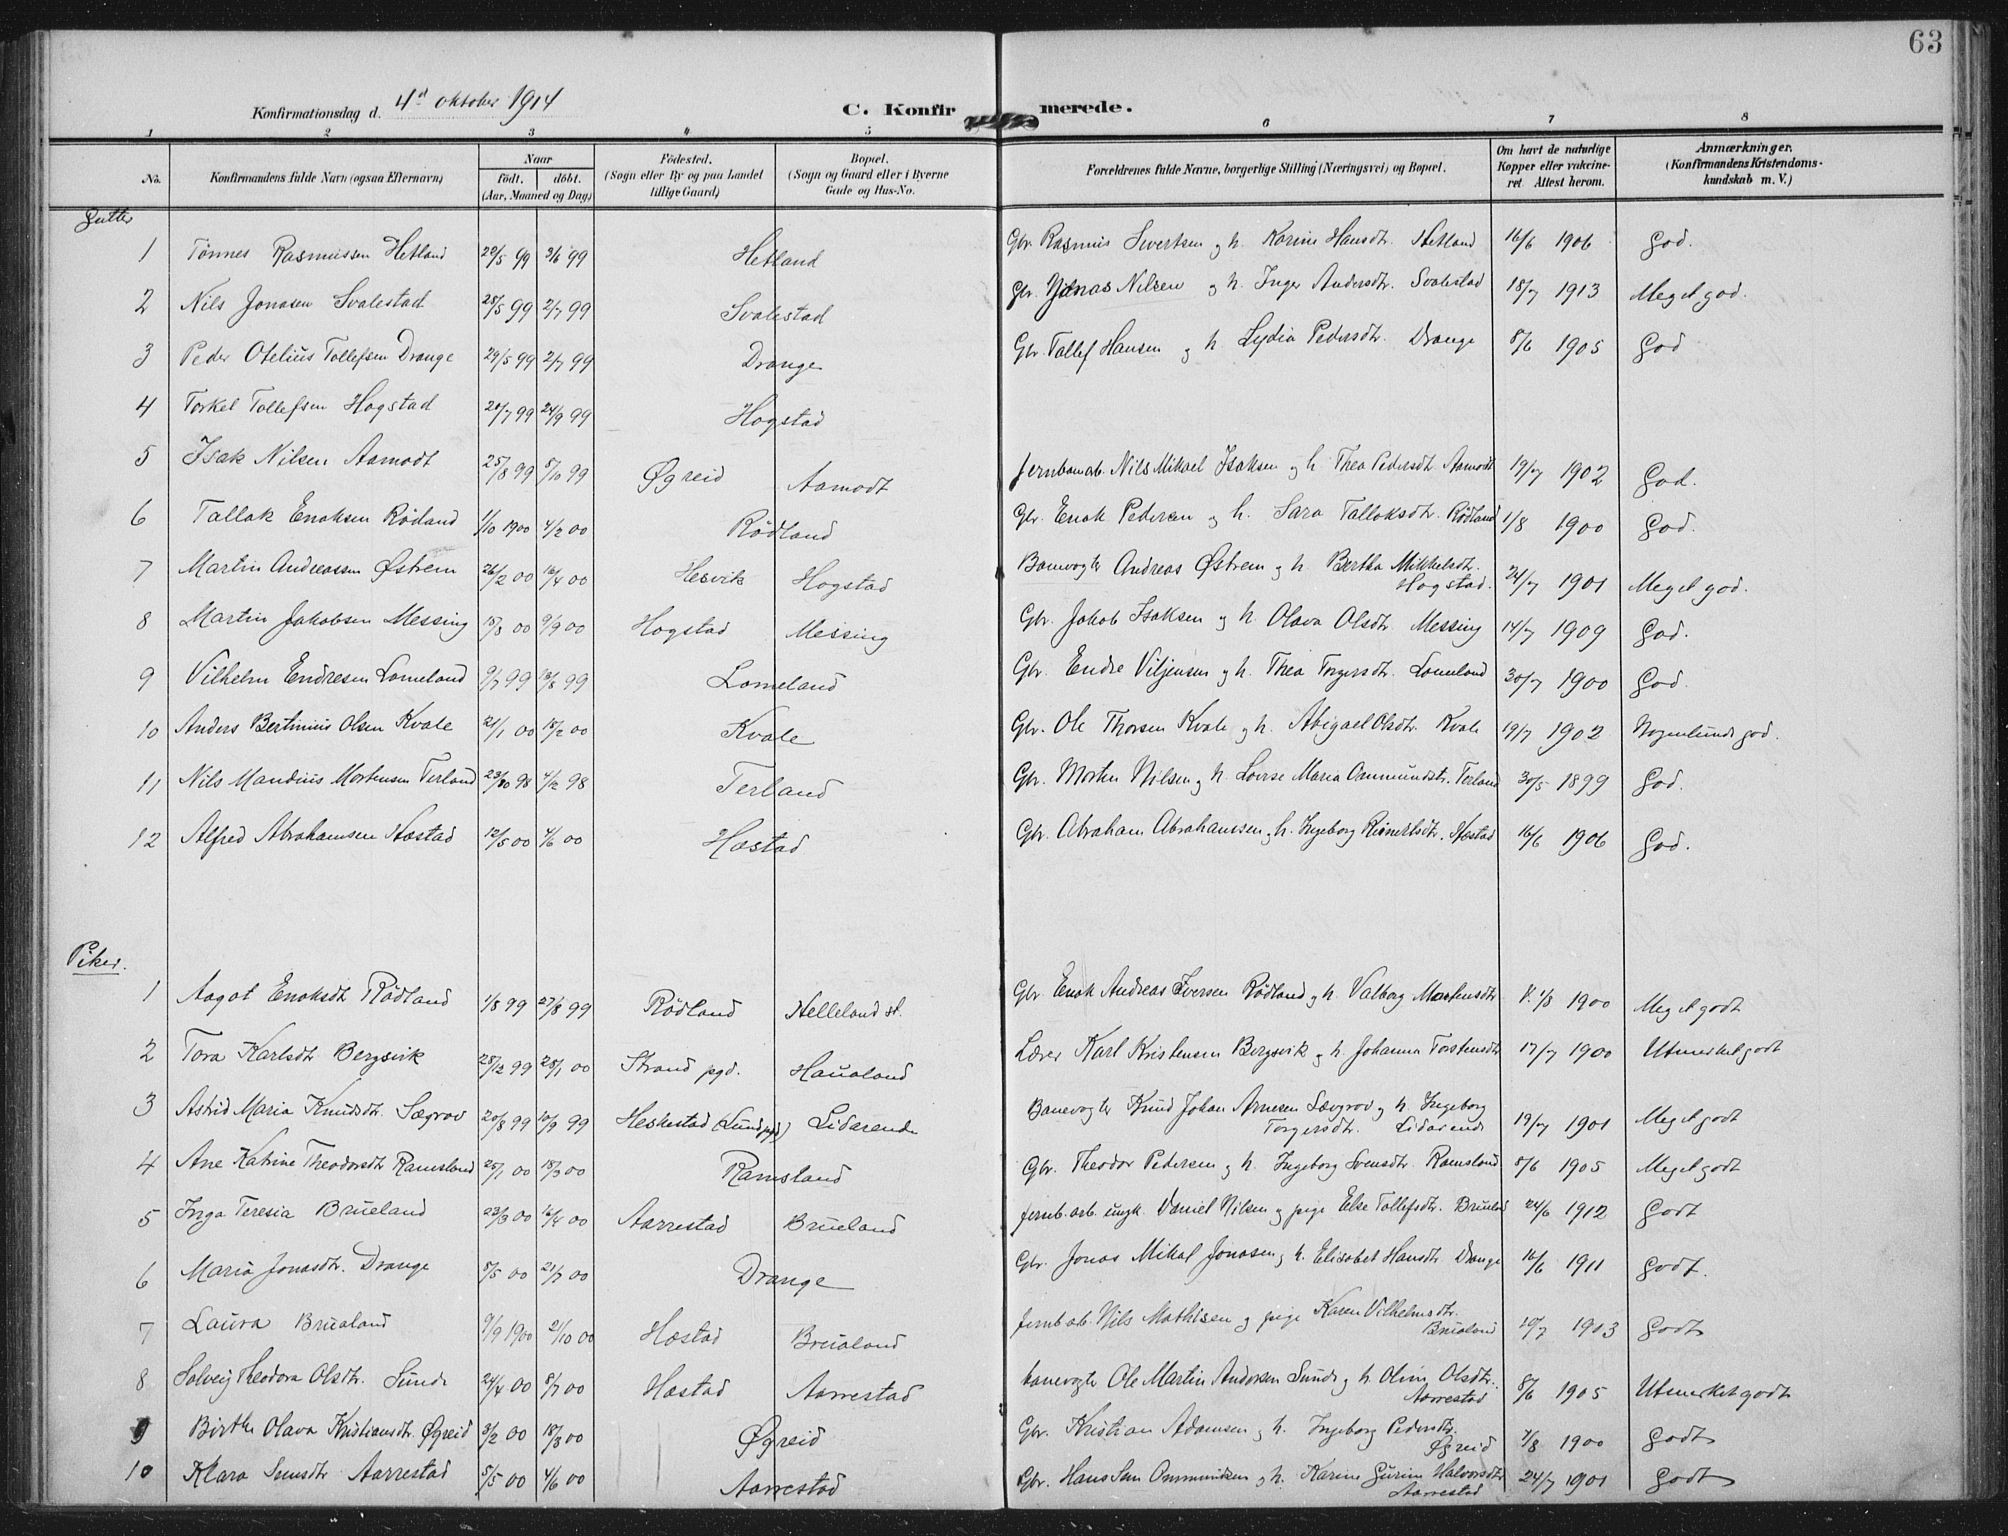 63
Konfirmationsdag d. 4d oktober 1914
C. Konfirmerede.
1 2 3 4 5 6 7 8
No. Konfirmandens fulde Navn (ogsaa Efternavn) Naar født. døbt. (Aar, Maaned og Dag) Fødested. (Sogn eller By og paa Landet tillige Gaard) Bopæl. (Sogn og Gaard eller i Byerne Gade og Hus-No. Forældrenes fulde Navne, borgerlige Stilling (Næringsvei) og Bopæl. Om havt de naturlige Kopper eller vakcineret. Attest herom. Anmærkninger. (Konfirmandens Kristendomskundskab m. V.)
Gutter
1 Tønnes Rasmussen Hetland 22/5 99 3/6 99 Hetland Gbr. Rasmus Sivertsen og h. Karine Hansdtr. Hetland 16/6 1906 God.
2 Nils Jonasen Svalestad 28/5 99 2/7 99 Svalestad Gbr. Jonas Nilsen og h. Inger Andersdtr. Svalestad 18/7 1913 Meget god.
3 Peder Otelius Tollefsen Drange 29/5 99 2/7 99 Drange Gbr. Tallef Hansen og h. Lydia Pedersdtr. Drange 8/6 1905 God
4 Torkel Tollefsen Hogstad 20/7 99 24/9 99 Hogstad
5 Isak Nilsen Aamodt 25/8 99 8/10 99 Øgreid Aamodt Jernbanearb. Nils Mikael Isaksen og h. Thea Pedersdtr. Aamodt 19/7 1902 God.
6 Tallak Enoksen Rødland 1/10 1900 4/2 00 Rødland Gbr. Enok Pedersen og h. Sara Tallaksdtr. Rødland 1/8 1900 God.
7 Martin Andreassen Østrem 26/2 00 16/4 00 Hesvik Hogstad Banevogter Andreas Østrem og h. Bertha Mikkelsdtr. Hogstad. 24/7 1901 Meget god.
8 Martin Jakobsen Messing 18/8 00 9/9 00 Hogstad Messing Gbr. Jakob Isaksen og h. Olava Olsdtr. Messing 14/7 1909 God.
9 Vilhelm Endresen Lomeland 9/7 99 13/8 99 Lomeland Gbr. Endre Viljensen og h. Thea Torgersdtr. Lomeland 30/7 1900 God.
10 Anders Bertinius Olsen Kvale 21/1 00 18/2 00 Kvale Gbr. Ole Thorsen Kvale og h. Abigael Olsdtr. Kvale 19/7 1902 Nogenlunde god.
11 Nils Mandius Mortensen Terland 23/10 98 4/12 98 Terland Gbr. Morten Nilsen og h. Lovise Maria Ommundsdtr. Terland 30/5 1899 God.
12 Alfred Abrahamsen Hæstad 12/5 00 4/6 00 Hæstad Gbr. Abraham Abrahamsen og h. Ingeborg Reinertsdtr. Hæstad 16/6 1906 God.
Piker.
1 Aagot Enoksdtr Rødland 1/8 99 27/8 99 Rødland Helleland st. Gbr Enok Andreas Iversen Rødland og h. Valborg Mortensdtr V. 1/8 1900 Meget godt
2 Tora Karlsdtr Bergsvik 28/12 99 28/1 00 Strand pgd. Haualand Lærer Karl Kristensen Bergsvik og h. Johanna Torstensdtr 17/7 1900 Utmerket godt
3 Astrid Maria Knudsdtr. Sægrov 20/8 99 10/9 99 Heskestad (Lund pgd) Lidarende Banevogter Knud Johan Arnesen Sægrov og h. Ingeborg Torgersdtr. Lidarende 19/7 1901 Meget godt
4 Ane Katrine Theodorsdtr Ramsland 25/1 00 18/3 00 Ramsland Gbr. Theodor Pedersen og h. Ingeborg Svensdtr. Ramsland 8/6 1905 Meget godt
5 Inga Teresia Brueland 23/3 00 16/4 00 Aarrestad Brueland Jernb.arb. ungk. Daniel Nilsen og pige Else Tollefsdtr. Brueland 24/6 1912 Godt
6 Maria Jonasdtr. Drange 8/5 00 21/7 00 Drange Gbr. Jonas Mikal Jonasen og h. Elisabet Hansdtr Drange 16/6 1911 Godt.
7 Laura Brualand 9/9 1900 21/10 00 Hæstad Brualand Jernb.arb. Nils Mathisen og pige Karen Vilhelmsdtr. Brualand 10/7 1903 Godt
8 Solveig Theodora Olsdtr. Sunde 24/4 00 8/7 00 Hæstad Aarrestad banevogter Ole Martin Andersen Sunde og h. Oline Olsdtr. Aarrestad 8/6 1905 Utmerket godt
9 Birthe Olava Kristiansdtr. Øgreid 3/2 00 18/3 00 Øgreid Gbr. Kristian Adamsen og h. Ingeborg Pedersdtr. Øgreid 1/8 1900 Godt
10 Klara Semsdtr Aarrestad 5/5 00 4/6 00 Aarrestad Gbr. Hans Sem Ommundsen og h. Karine Gurine Halvorsdtr Aarrestad 24/7 1901 Godt